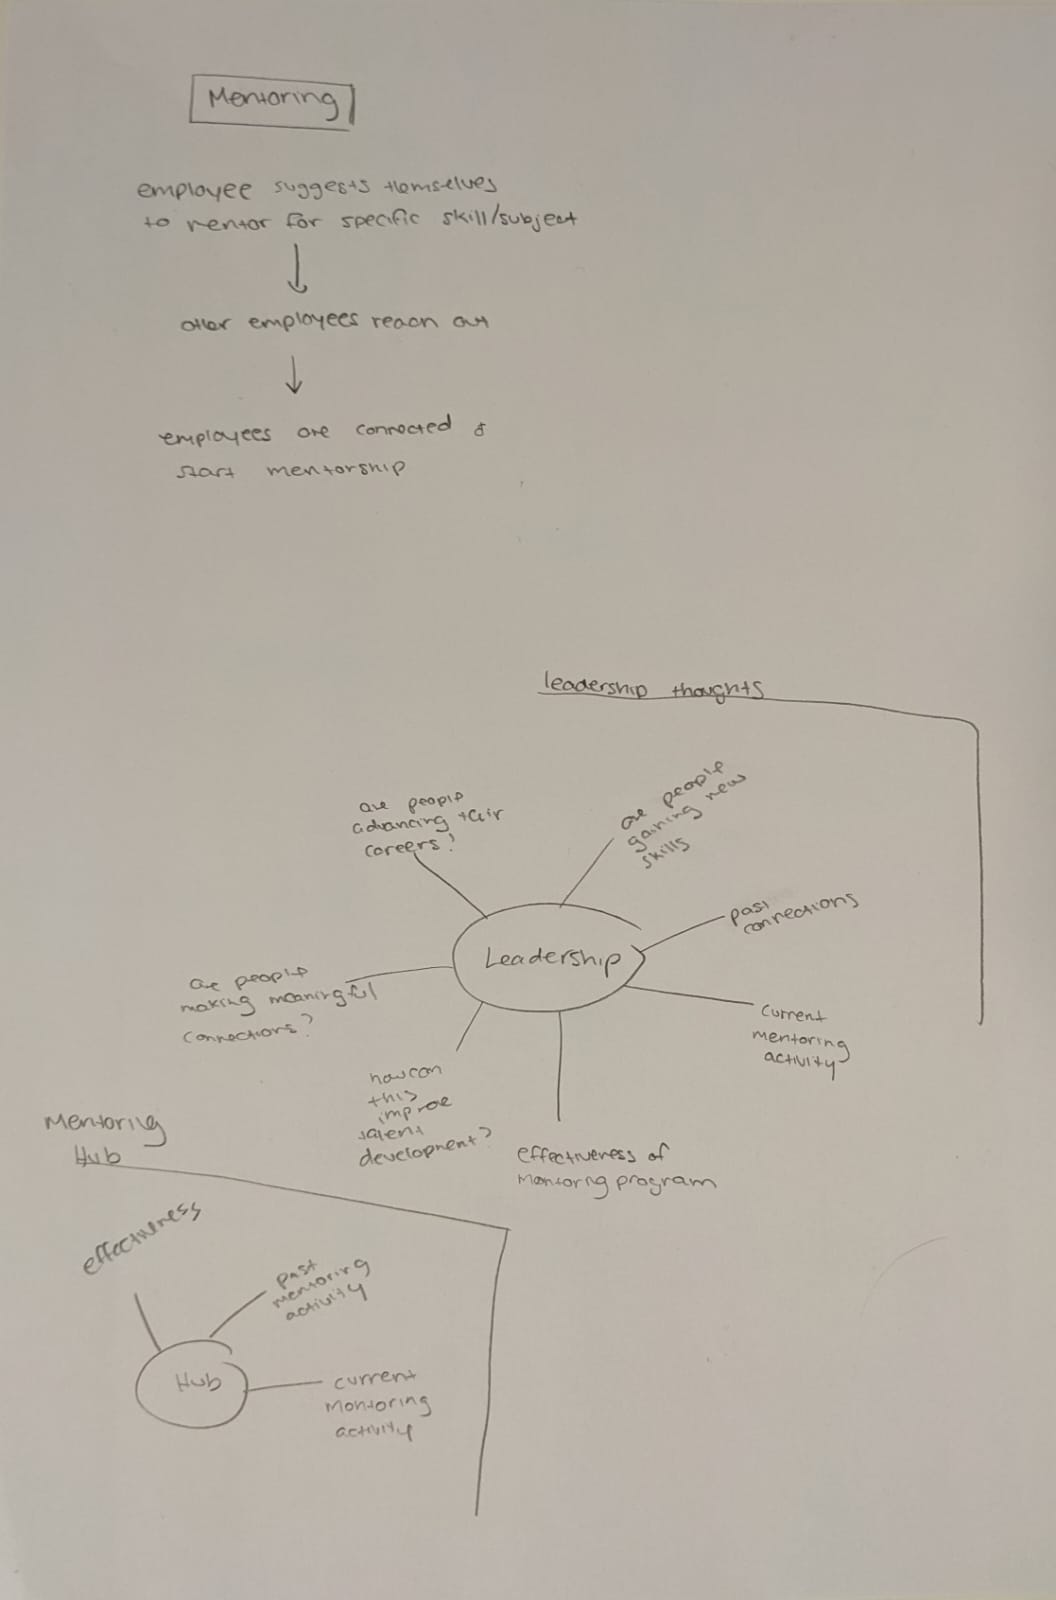 Mentoring
employee suggests themselves
to mentor for specific skill/subject
other employees reach out
employees are connected &
start mentorship
leadership thoughts
are people
advancing their
careers?
are people
gaining new
skills
past
connections
Leadership
are people
making meaningful
connections?
current
mentoring
activity
how can
this
improve
talent
development?
effectiveness of
mentoring program
Mentoring
Hub
effectiveness
past
mentoring
activity
Hub
current
mentoring
activity